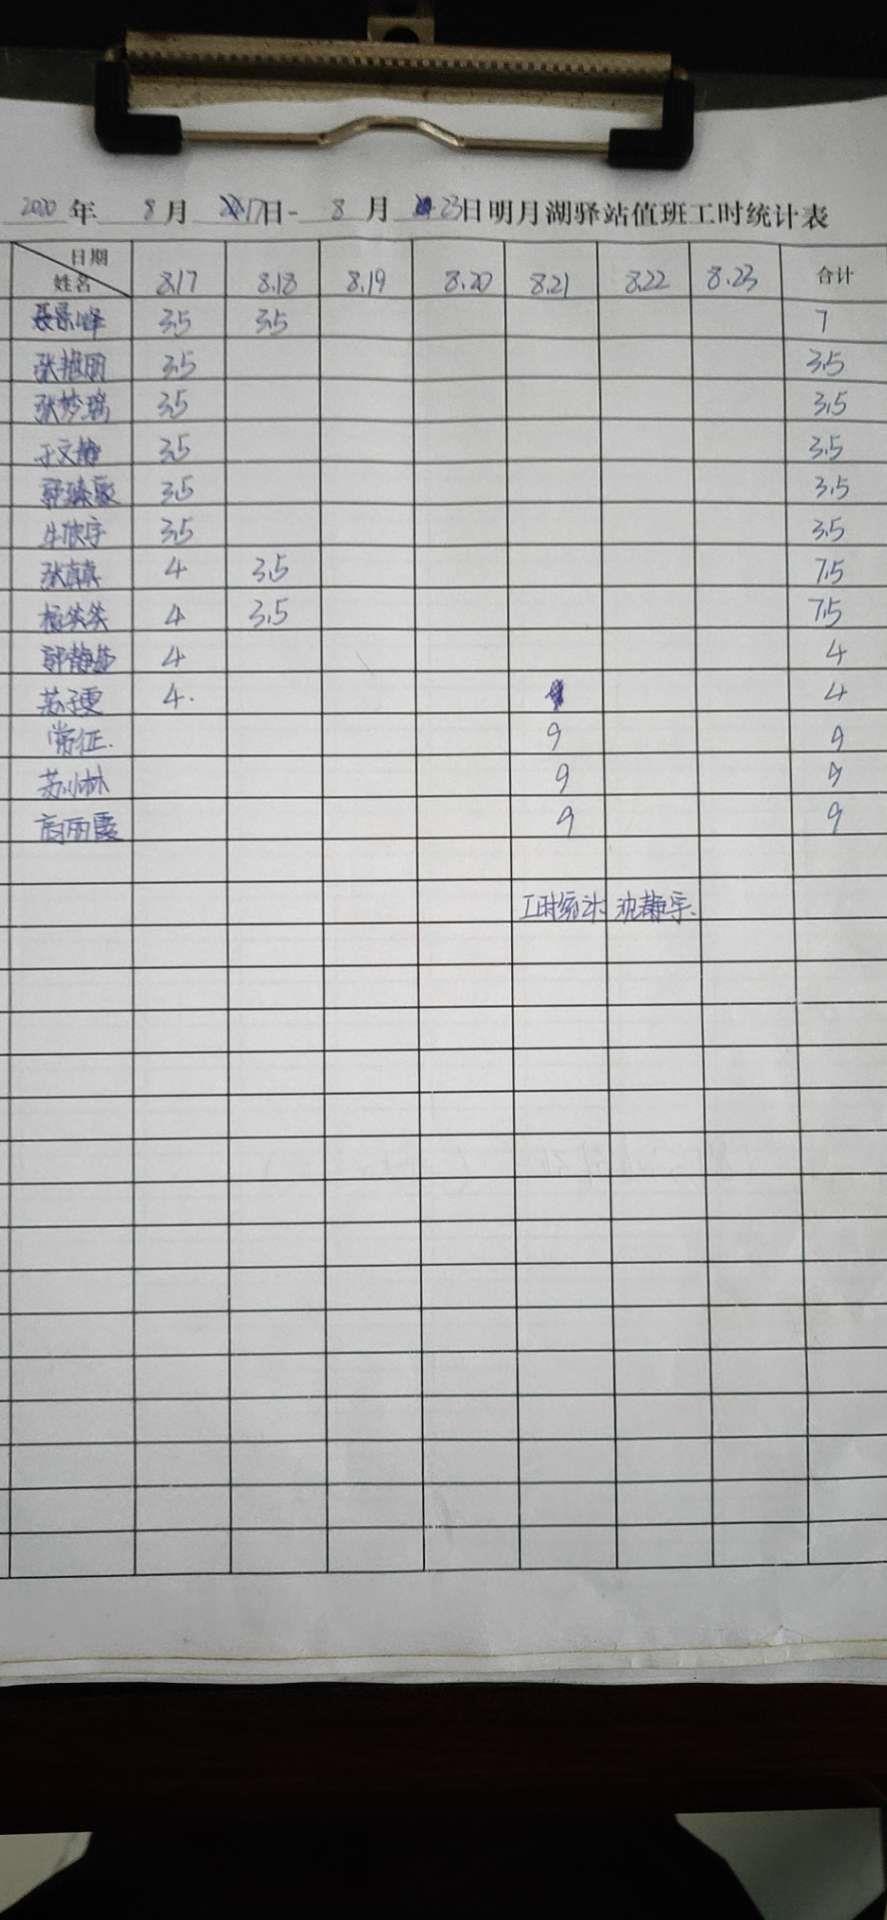 2020年 8月 17日- 8月 23日明月湖驿站值班工时统计表
日期
姓名 8.17 8.18 8.19 8.20 8.21 8.22 8.23 合计
3.5 3.5 7
张艳丽 3.5 3.5
张梦瑶 3.5 3.5
于文静 3.5 3.5
3.5 3.5
牛欣宇 3.5 3.5
张真真 4 3.5 7.5
杨笑笑 4 3.5 7.5
郭静茹 4 4
苏子更 4. 4
常征. 9 9
苏小林 9 9
高丽霞 9 9
工时统计: 沈静宇.